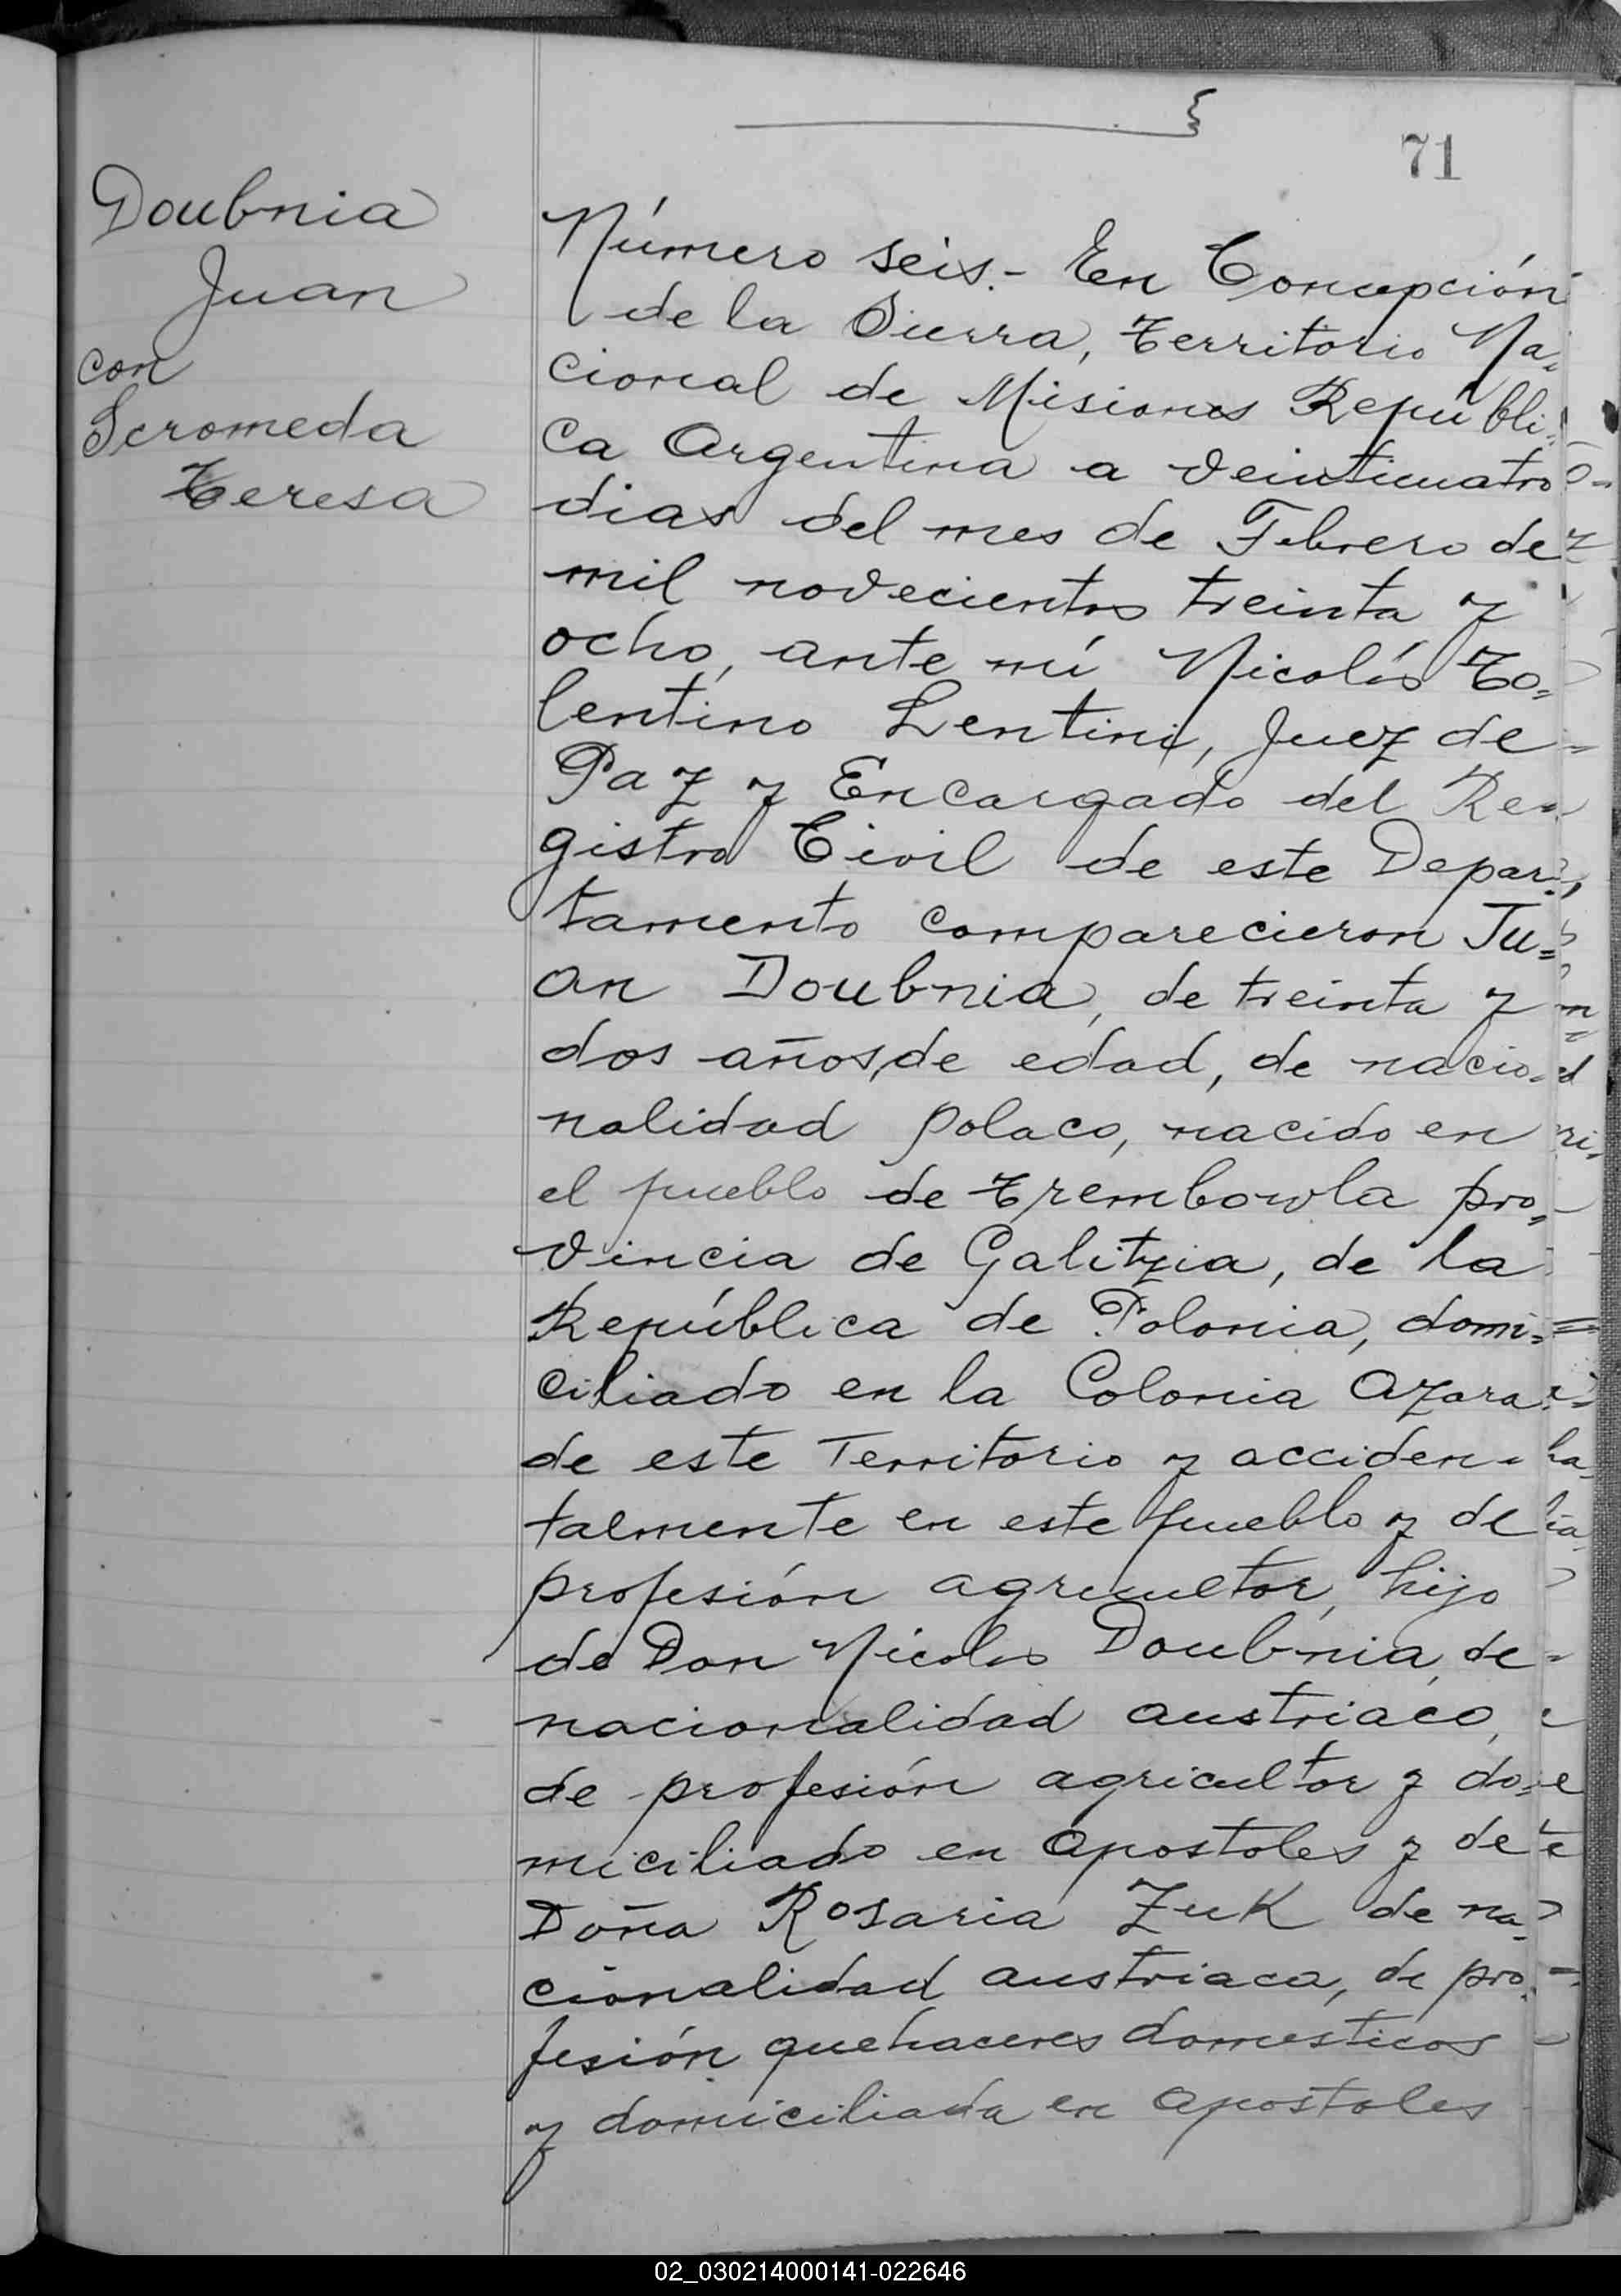 71
Doubnia
Juan
con
Scromeda
Teresa
Número seis.- En Concepción
de la Sierra, Territorio Na=
cional de Misiones Repúbli=
ca Argentina a veinticuatro
dias del mes de Febrero de
mil novecientos treinta y
ocho, ante mí Nicolás To=
lentino Lentini, Juez de
Paz y Encargado del Re=
gistro Civil de este Depar=
tamento comparecieron Ju=
an Doubnia, de treinta y
dos años, de edad, de nacio=
nalidad polaco, nacido en
el pueblo de Trembowla pro=
vincia de Galitzia, de la
República de Polonia, domi=
ciliado en la Colonia Azara
de este Territorio y acciden=
talmente en este pueblo y de
profesión agricultor, hijo
de Don Nicolas Doubnia, de
nacionalidad austriaco,
de profesión agricultor y do=
miciliado en Apostoles y de
Doña Rosaria Zuk de na=
cionalidad austriaca, de pro=
fesión quehaceres domesticos
y domiciliada en Apostoles
02_030214000141-022646